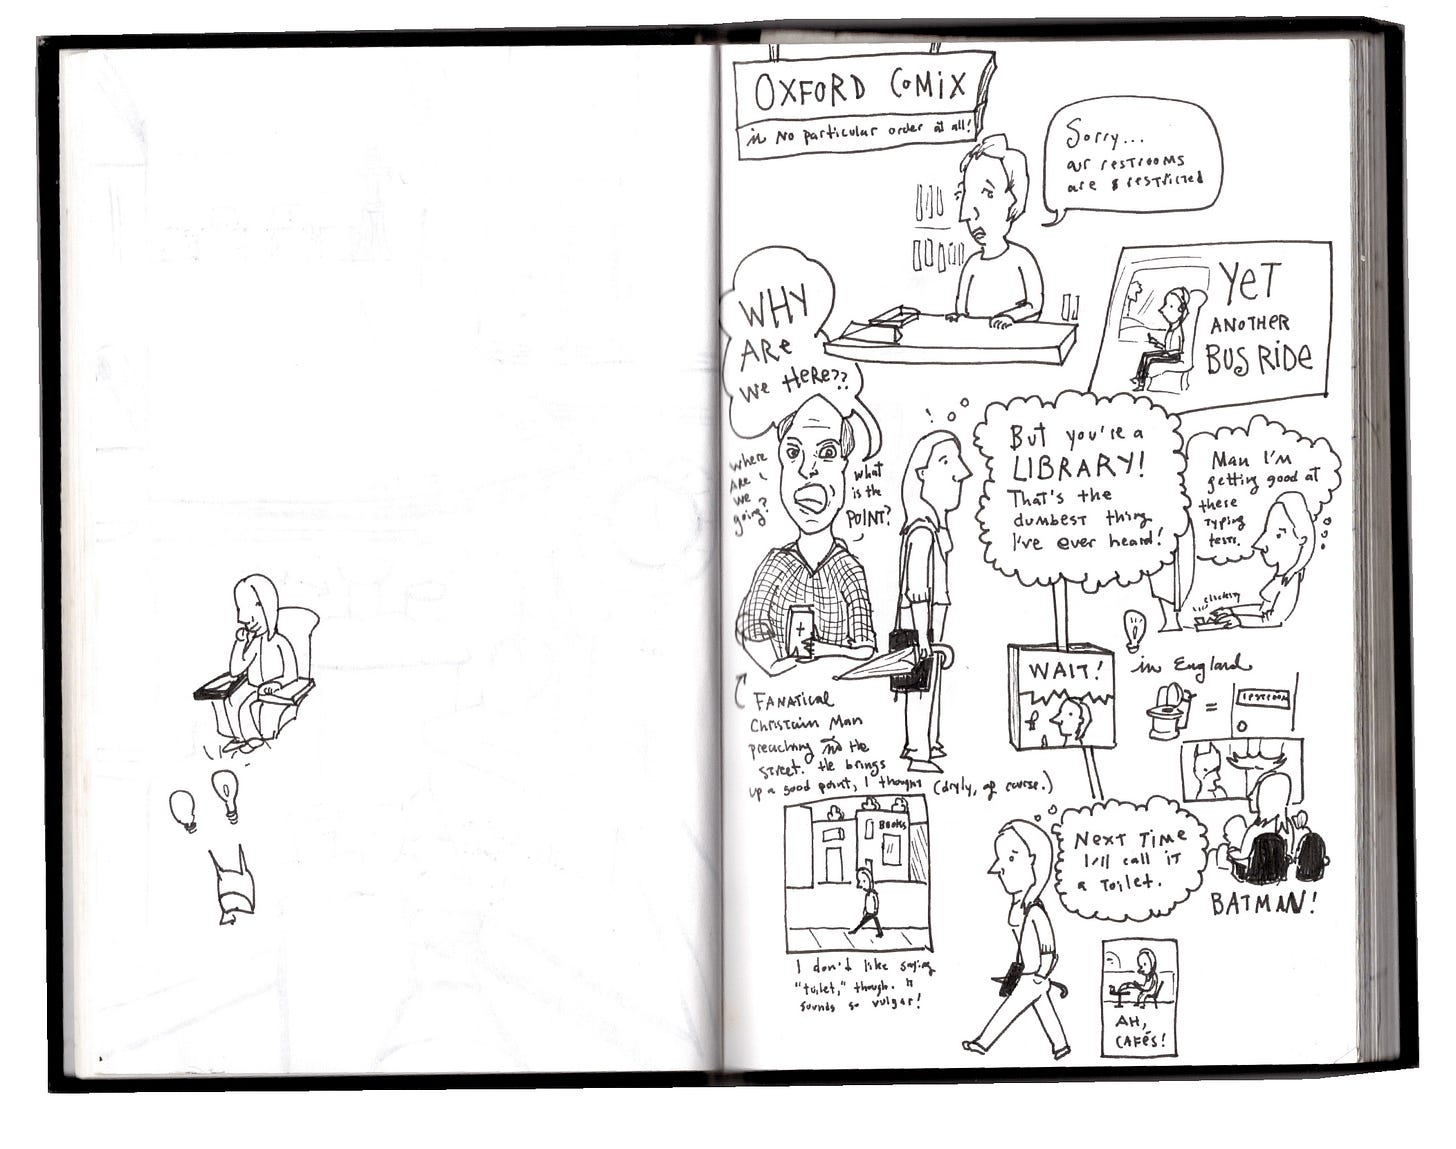 OXFORD COMIX
in no particular order at all!
Sorry...
our restrooms
are restricted
YET
ANOTHER
BUS RIDE
WHY
ARE
we HERE??
where
ARE
we
going?
what
is the
POINT?
But you're a
LIBRARY!
That's the
dumbest thing
I've ever heard!
Man I'm
getting good at
these
typing
tests.
clickity
WAIT!
in England
=
RESTROOM
FANATICAL
Christain Man
preaching in the
street. He brings
up a good point, I thought (dryly, of course.)
BOOKS
I don't like saying
"toilet," though. It
sounds so vulgar!
NEXT TIME
I'll call it
a Toilet.
BATMAN!
AH,
CAFÉS!